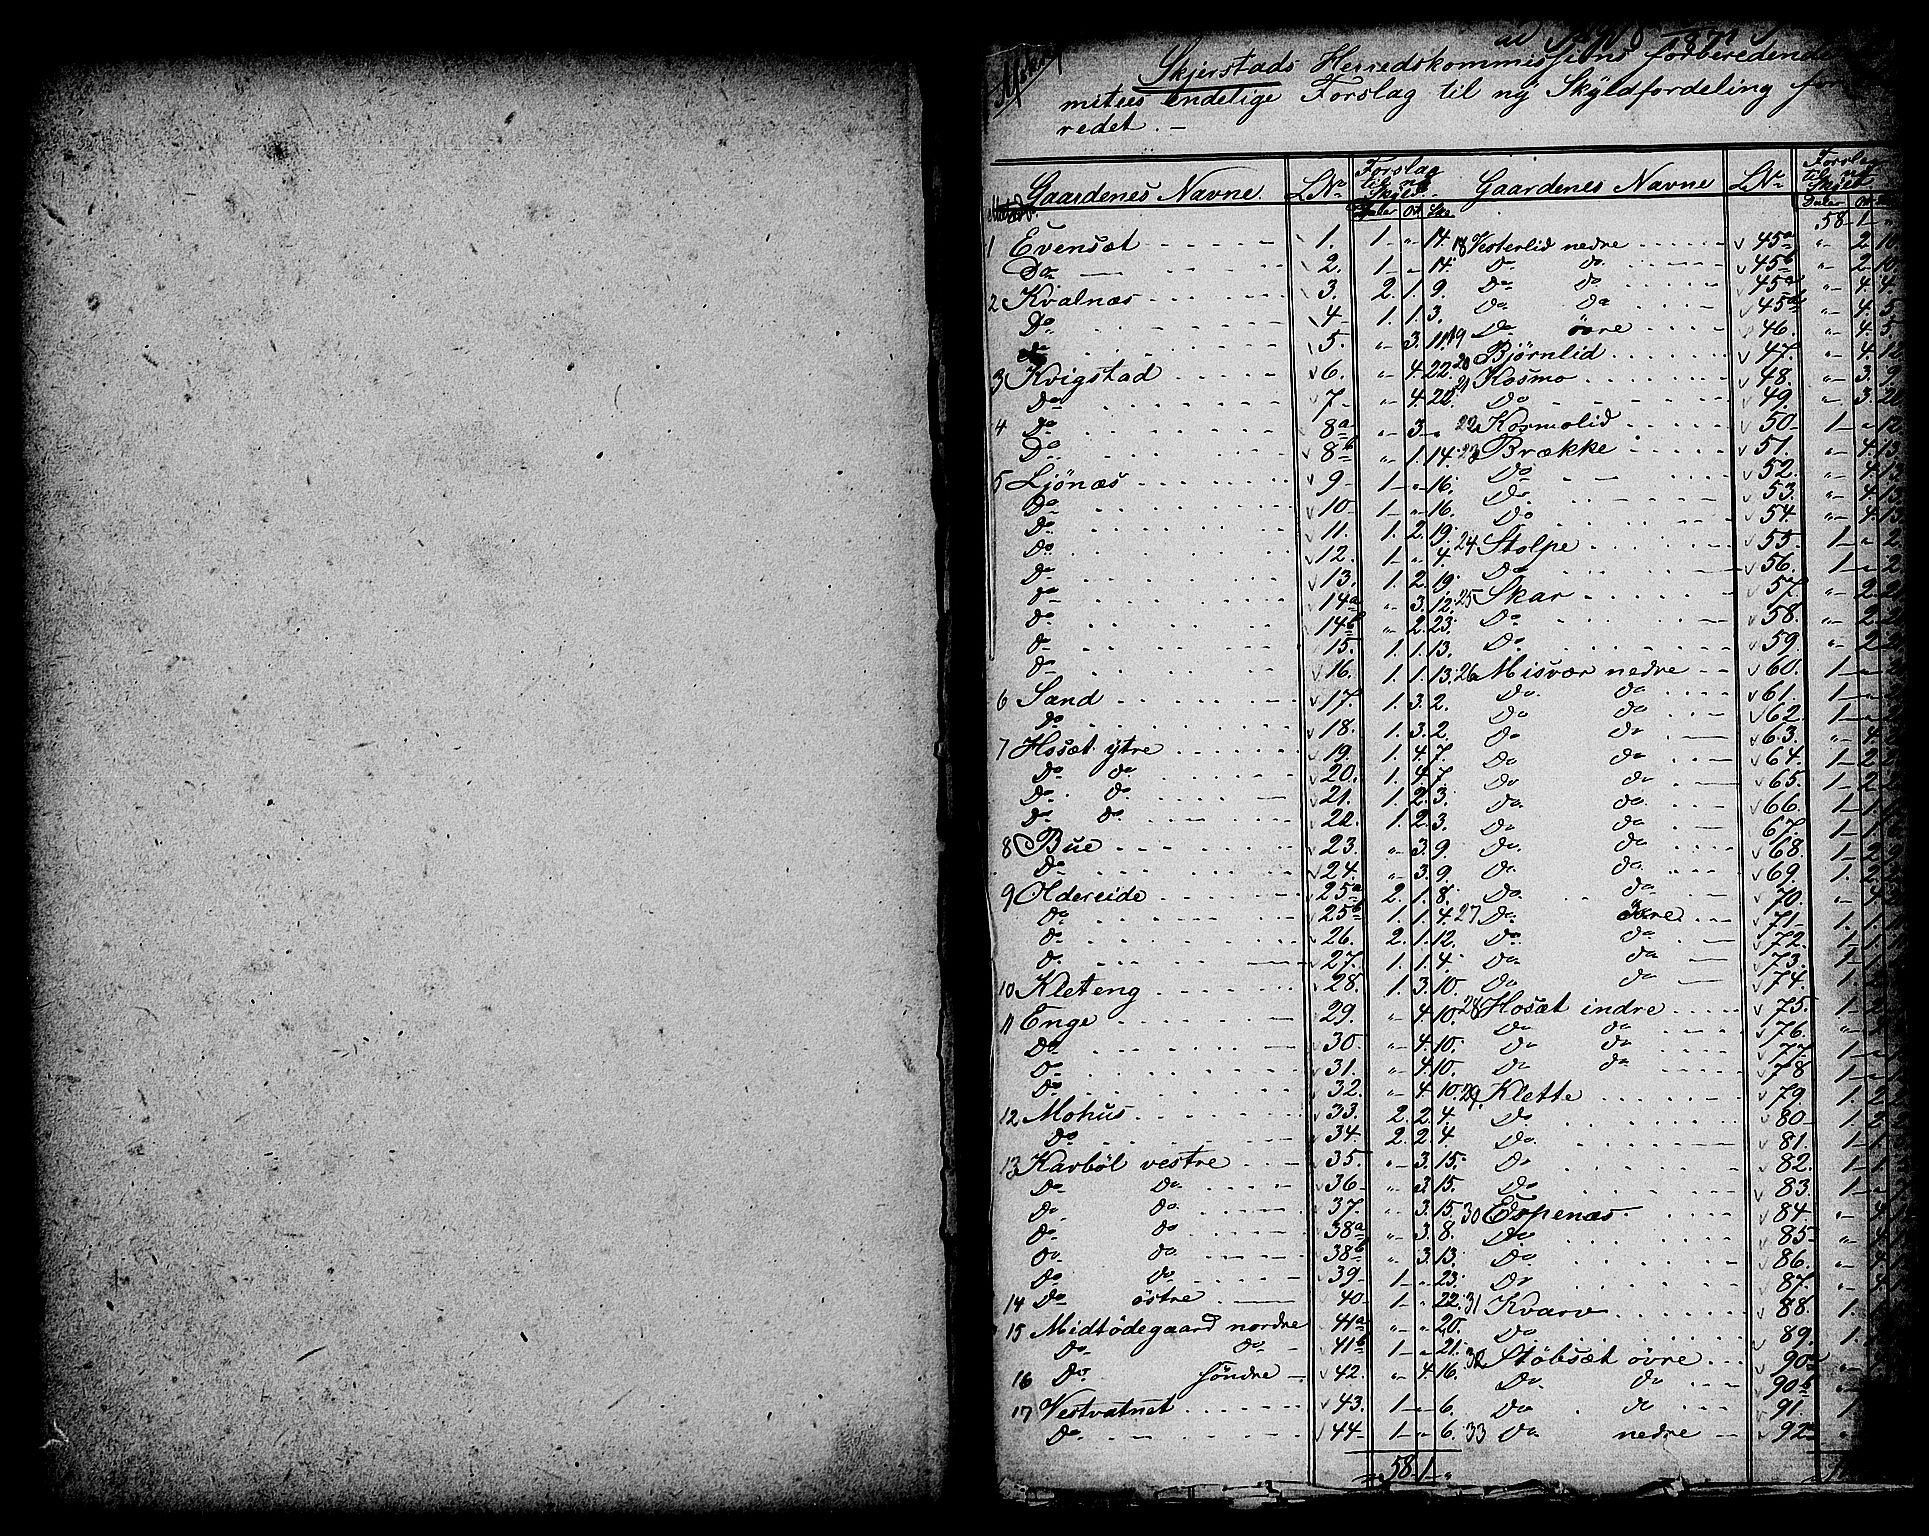 Skjerstads Herredskommissions forberedende
mitees endelige Forslag til ny Skyldfordeling for
redet. –
Gaardenes Navne. LNo Forslag til ny Skyld. Daler Ort Sk.
1 Evensæt 1. 1 " 14.
Do 2. 1 " 14.
2 Kvalnæs 3. 2. 1. 9.
Do 4. 1. 1. 3.
Do 5. " 3. 11.
3 Kvigstad 6. " 4. 22.
Do 7 " 4. 22.
4 Do 8a " 3 "
Do 8b " 1. 14.
5 Ljönæs 9 1 " 16.
Do 10 1 " 16.
Do 11. 1. 2. 19.
Do 12. 1 " 4.
Do 13. 1 2. 19.
Do 14a " 3. 12.
Do 14b " 2. 23.
Do 15. 1. 1. 13.
Do 16. 1. 1. 13.
6 Sand 17. 1. 3. 2.
Do 18. 1. 3. 2.
7 Hosæt ytre 19. 1. 4. 7.
Do do 20. 1. 4. 7.
Do do 21. 1. 2. 3.
Do do 22. 1. 2. 3.
8 Bue 23. " 3. 9.
Do 24. " 3. 9.
9 Oldereide 25a 2. 1. 8.
Do 25b 1. 1. 4.
Do 26. 2. 1. 12.
Do 27. 1. 1. 4.
10 Kleteng 28. 1. 3. 10.
11 Enge 29. " 4. 10.
Do 30. " 4. 10.
Do 31. " 4. 10.
Do 32. " 4. 10.
12 Mohus 33. 2. 2. 4.
Do 34. 2. 2. 4
13 Karböl vestre 35. " 3. 15.
Do do 36 " 3. 15.
Do do 37. " 3. 15.
Do do 38a " 3. 8.
Do do 38b " 3. 13.
Do do 39 1 " 23.
14 Do östre 40 1 " 22.
15 Midtödegaard nordre 41a " " 20.
Do do 41b 1 " 21.
16 Do söndre 42. " 4. 16.
17 Vestvatnet 43. 1 " 6.
Do 44 1 " 6.
58. 1 "
Gaardenes Navne LNo Forslag til ny Skyld Daler Ort
58 1
18 Vesterlid nedre 45a " 2. 10.
Do do 45b " 2. 10.
Do do 45c " 4. 4.
Do do 45d " 4. 5.
19 Do övre 46. " 4. 5.
20 Bjørnlid 47. " 4. 12
21 Kosmo 48. " 3. 9
Do 49. " 3.
22 Kosmolid 50 1 " 12
23 Brække 51. " 4. 13
Do 52. " 4. 13
Do 53. " 4. 13
Do 54. " 4. 13
24 Stolpe 55. 1 " 2
Do 56. 1 " 2
25 Skar 57. " 2.
Do 58. " 2.
Do 59. " 2.
26 Misvær nedre 60. 1 "
Do do 61. 1
Do do 62. 1
Do do 63. " 4
Do do 64. 1 2
Do do 65. 1 2
Do do 66. 1 1
Do do 67. 1 1
Do do 68. 1 2
Do do 69. 1. 2
Do do 70. "
27 Do övre 71 1. 1
Do do 72. 1 1
Do do 73. 1
Do do 74. 1
28 Hosæt indre 75. 1 2
Do do 76. "
Do do 77. 1
Do do 78 1
29 Klette 79. 1. 2
Do 80 1. 2
Do 81. 1 1
Do 82. 1 1
Do 83. 1
30 Espenæs 84 " 4
Do 85 " 4
Do 86. " 4
Do 87. " 4
31 Kvarv 88. 1
Do 89. 1.
32 Stöbsæt övre 90a "
Do do 90b "
Do do 91 1
33 Do nedre 92a "